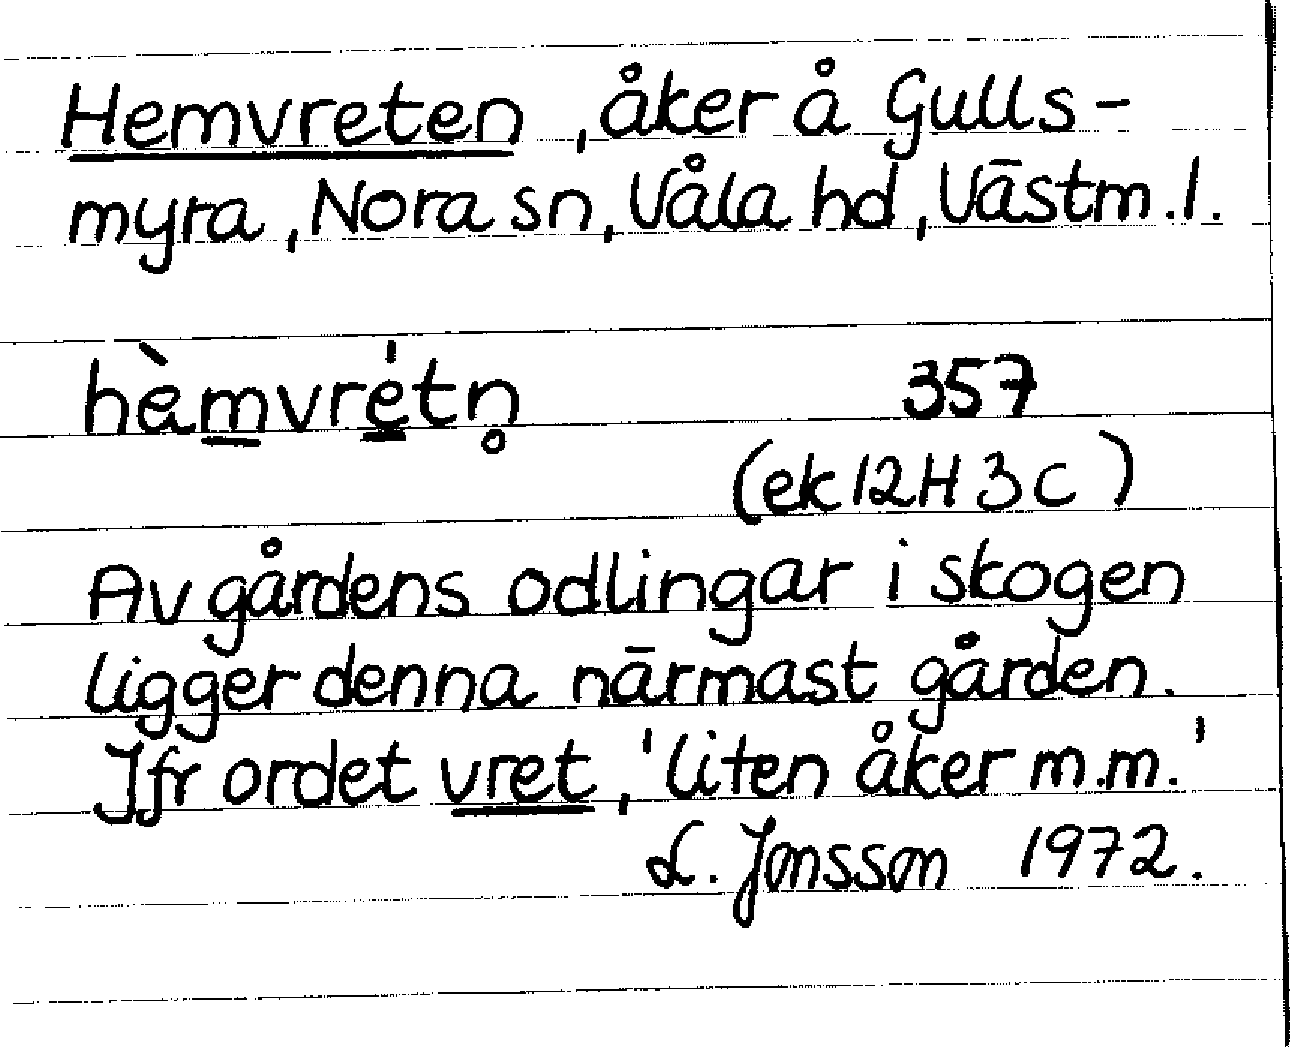 Hemvreten, åker å Gulls-
myra, Nora sn, Våla hd, Västm.l.
hèm̲vré̲tn̥ 357
(ek 12H 3c)
Av gårdens odlingar i skogen
ligger denna närmast gården.
Jfr ordet vret, 'liten åker m.m.'
L. Jonsson 1972.